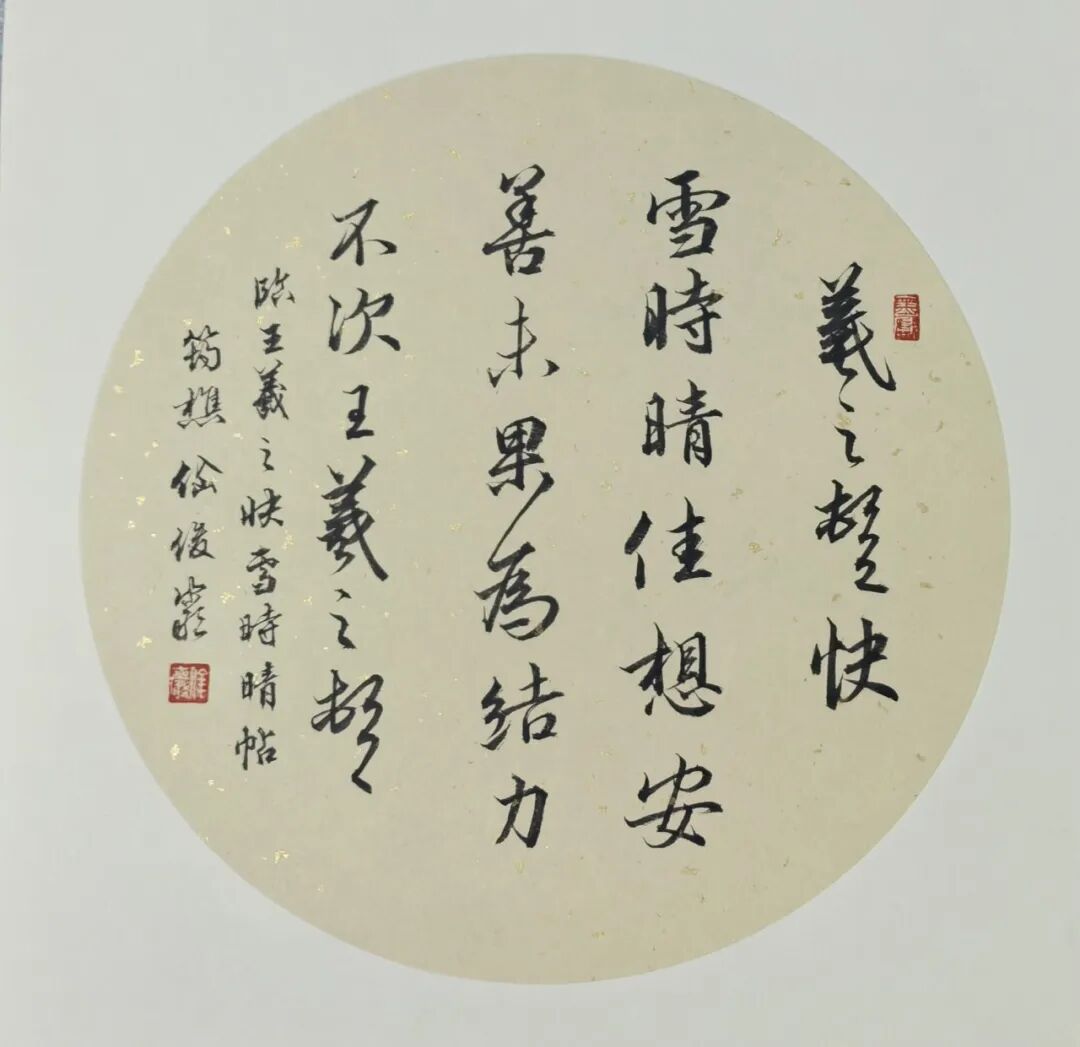 羲之頓首快
雪時晴佳想安
善未果為結力
不次王羲之頓首
臨王羲之快雪時晴帖
筠樵徐俊